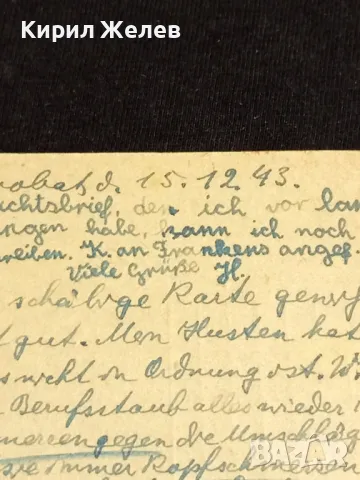 Кирил Желев
d. 15.12.43.
chtsbrief, den ich vor lan
ngen habe, kann ich noch
reiben. K. an Frankens angef.
Viele Grüße H.
Karte
t gut. Men Husten hat
s nicht in Ordnung ist. W
Berufsstaub alles wieder
gegen die Umschläg
immer Kopfschmerzen
bazar